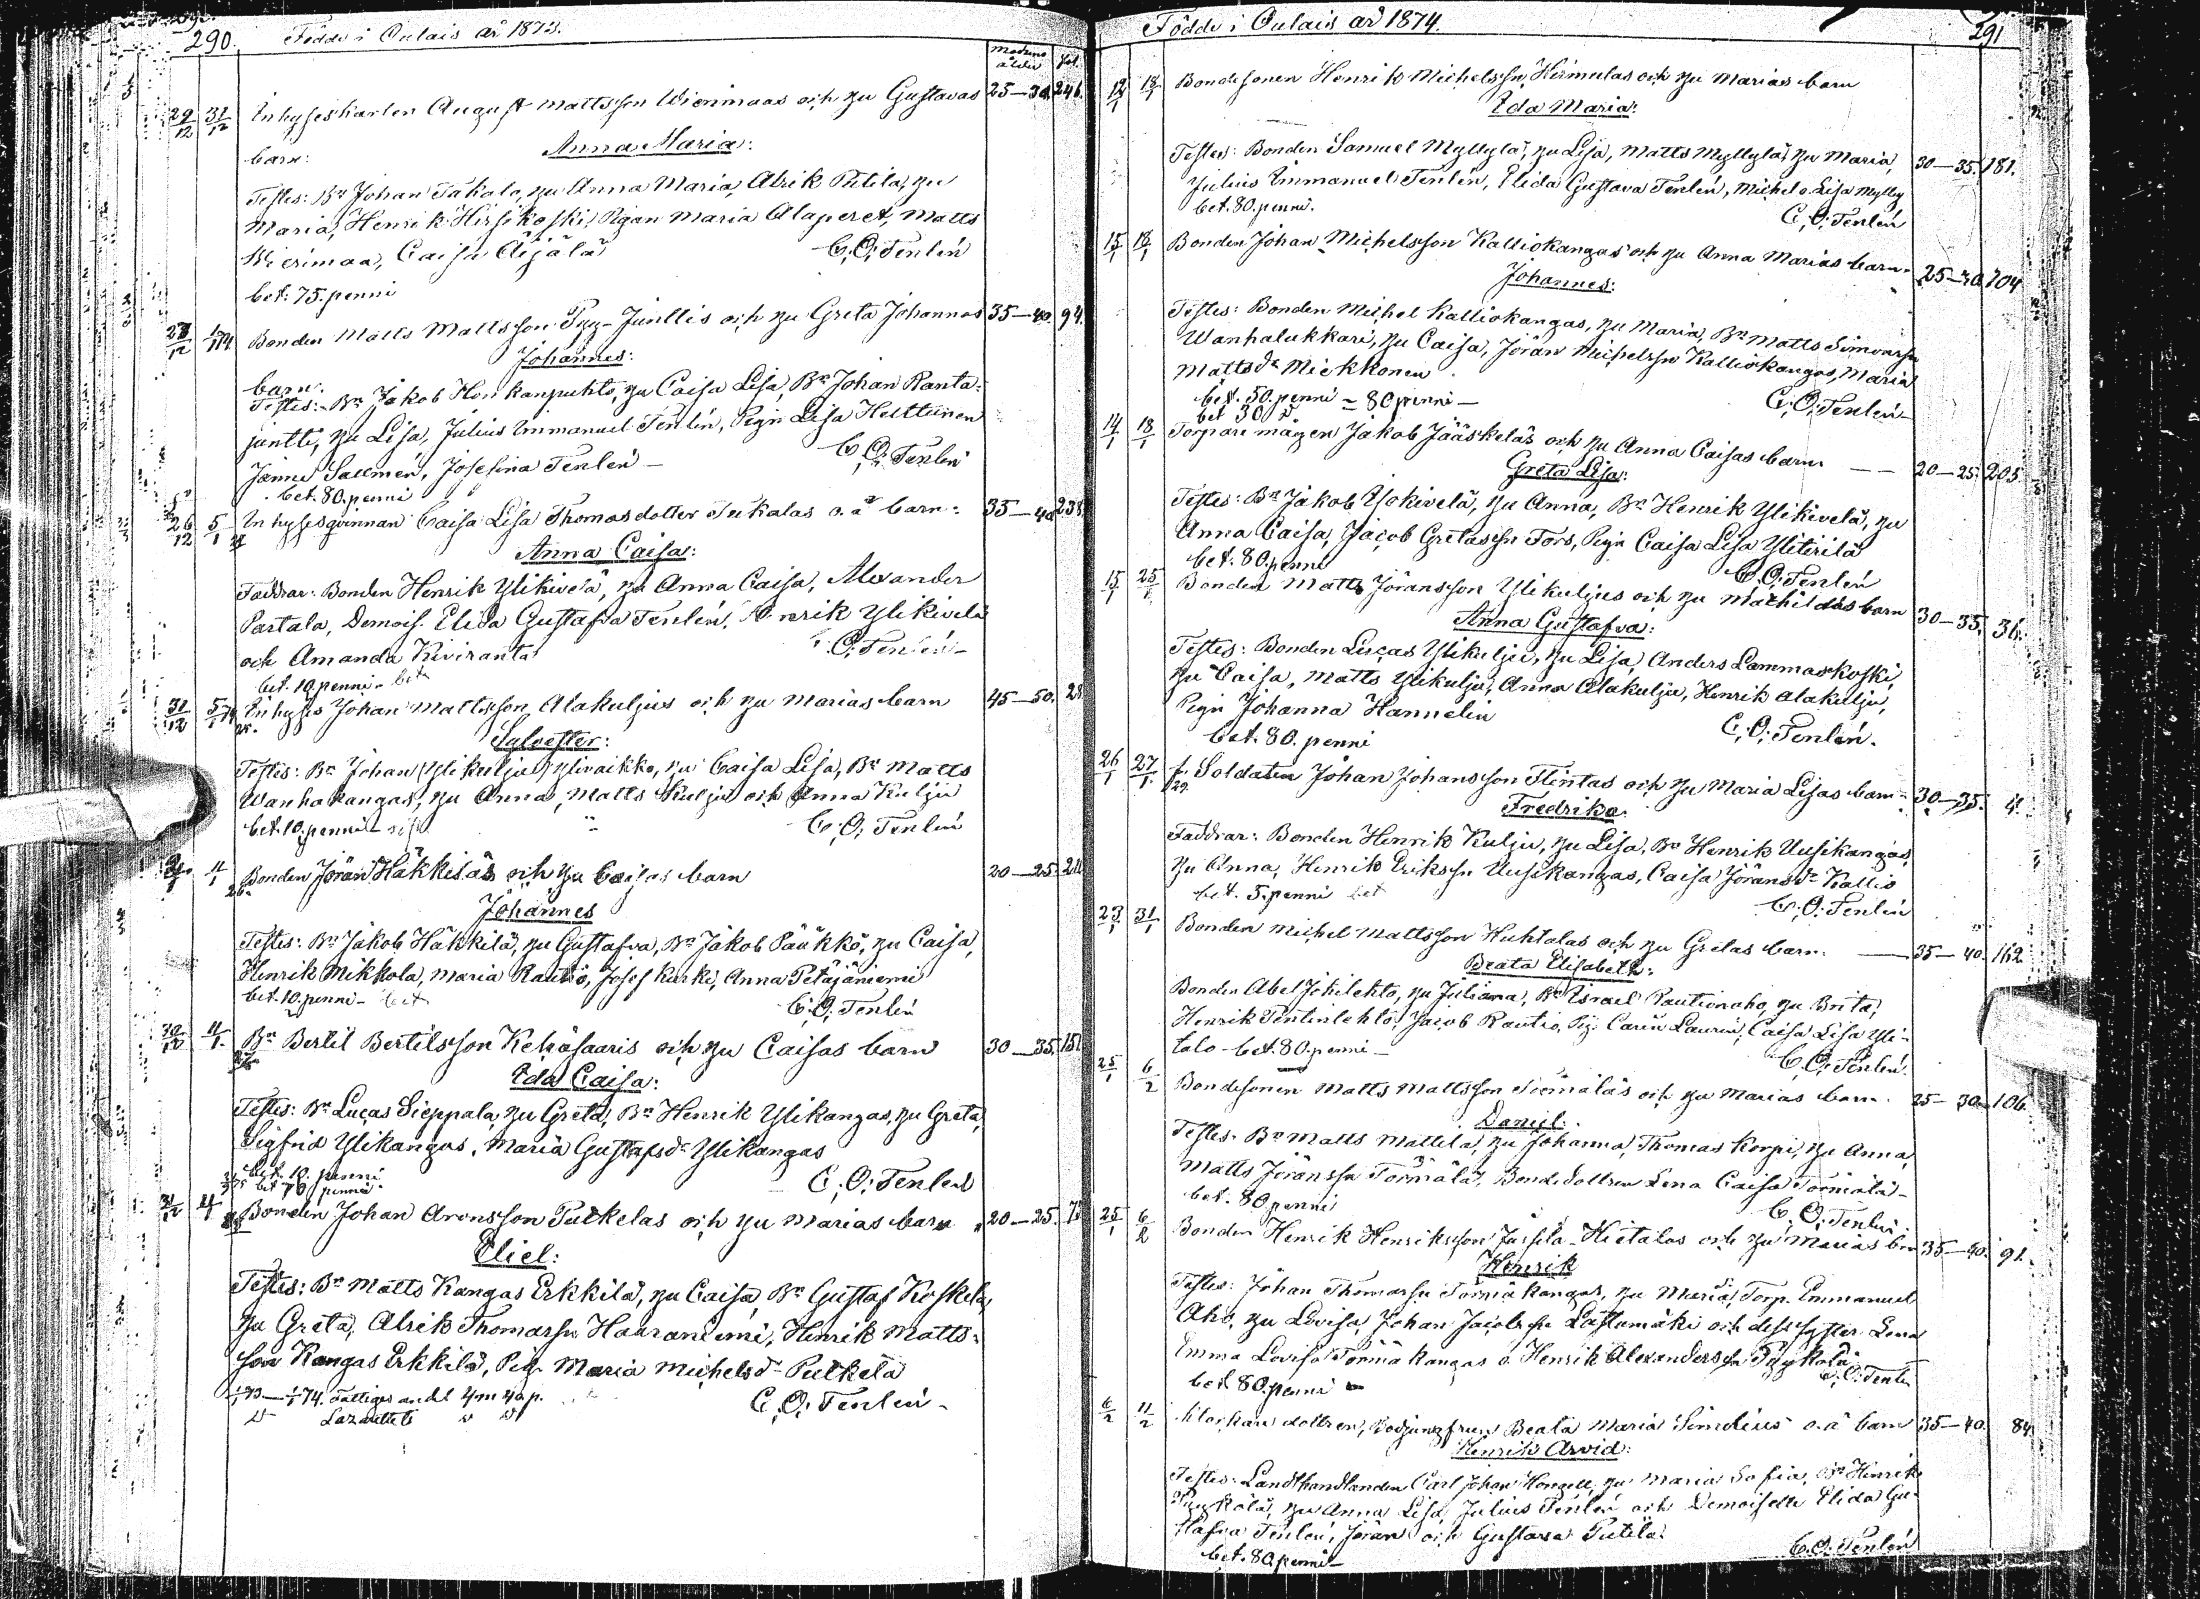 290. Födde i Oulais år 1873.
moderns ålder fol.
29/12 31/12 Inhyseskarlen August Mattsson Wierimaas och hu Gustavas 25–30. 246.
barn: Anna Maria:
Testes: Bn Johan Takala, hu Anna Maria, Alrik Putila, hu
Maria, Henrik Hirsikoski, Pigan Maria Alaperet, Matts
Wierimaa, Caisa Äijälä C. O. Tenlén
bet. 75. penni
27/12 1/1 74 Bonden Matts Mattsson Pyy-Junttis och hu Greta Johannas 35–40. 94.
barn. Johannes:
Testes: Bn Jakob Honkanpuhto, hu Caisa Lisa, Bn Johan Ranta-
juntti, hu Lisa, Julius Immanuel Tenlén, Pign Lisa Helttunen
Janne Sallmén, Josefina Tenlén – C. O. Tenlén
bet. 80. penni
26/12 5/1 Inhysesqvinnan Caisa Lisa Thomasdotter Tukalas o. ä barn: 35–40 238
Anna Caisa:
Faddrar: Bonden Henrik Ylikivelä, hu Anna Caisa, Alexander
Partala, Demois. Elida Gustafva Tenlén, Henrik Ylikivelä
och Amanda Kiviranta C. O. Tenlén –
bet. 10. penni – bet
31/12 5/1 74 Inhyses Johan Mattsson Alakuljus och hu Marias barn 45–50. 28
Sylvester:
Testes: Bn Johan (Ylikulju) Ylivaikko, hu Caisa Lisa, Bn Matts
Wanhakangas, hu Anna, Matts Kulju och Anna Kulju
bet. 10. penni – C. O. Tenlén
11/1 Bonden Jöran Häkkiläs och hu Caisas barn 20–25.
Johannes
Testes: Bn Jakob Häkkilä, hu Gustafva, Bn Jakob Pääkkö, hu Caisa,
Henrik Mikkola, Maria Rautio, Josef Kurki, Anna Petäjäniemi
bet. 10. penni – bet C. O. Tenlén
30/12 11/1 Bn Bertil Bertilsson Kehäsaaris och hu Caisas barn 30–35.
Ida Caisa:
Testes: Bn Lucas Sieppala, hu Greta, Bn Henrik Ylikangas, hu Greta,
Sigfrid Ylikangas, Maria Gustafsdr Ylikangas
bet. 10. penni C. O. Tenlén
bet 70 penni
31/12 11/1 Bonden Johan Aronsson Pulkelas och hu Marias barn 20–25.
Eliel:
Testes: Bn Matts Kangas Erkkilä, hu Caisa, Bn Gustaf Koskela,
hu Greta, Alrik Thomassn Haaraniemi, Henrik Matts-
son Kangas Erkkilä, Pig. Maria Michelsdr Pulkela
1/1 73 – 1/1 74. Fattiges andel 4 m 40 p. C. O. Tenlén –
Lazarettets
Födde i Oulais år 1874. 291
12/1 18/1 Bondesonen Henrik Michelssn Hirmulas och hu Marias barn
Ida Maria:
Testes: Bonden Samuel Myllylä, hu Lisa, Matts Myllylä, hu Maria, 30–35. 181.
Julius Immanuel Tenlén, Elida Gustava Tenlén, Michel o. Lisa Mylly
bet. 80. penni. C. O. Tenlén
15/1 18/1 Bonden Johan Michelsson Kalliokangas och hu Anna Marias barn. 25–30 104
Johannes:
Testes: Bonden Michel Kalliokangas, hu Maria, Bn Matts Simonssn
Wanhalukkari, hu Caisa, Jöran Michelssn Kalliokangas, Maria
Mattsdr Mickkonen
bet. 50. penni = 80 penni – C. O. Tenlén –
bet 30
14/1 18/1 Torpare mågen Jakob Jääskeläs och hu Anna Caisas barn. – – 20–25. 205
Greta Lisa:
Testes: Bn Jakob Yokivelä, hu Anna, Bn Henrik Ylikivelä, hu
Anna Caisa, Jacob Gretassn Fors, Pign Caisa Lisa Ylitirilä
bet. 80. penni C. O. Tenlén
15/1 25/1 Bonden Matts Jöransson Ylikuljus och hu Mathildas barn 30–35. 36.
Anna Gustafva:
Testes: Bonden Lucas Ylikulju, hu Lisa, Anders Lammaskoski,
hu Caisa, Matts Ylikulju, Anna Alakulju, Henrik Alakulju,
Pign Johanna Hannelin
bet. 80. penni C. O. Tenlén.
26/1 27/1 f. Soldaten Johan Johansson Flintas och hu Maria Lisas barn – 30–35. 4.
Fredrika.
Faddrar: Bonden Henrik Kulju, hu Lisa, Bn Henrik Uusikangas,
hu Anna, Henrik Erikssn Uusikangas, Caisa Jöransdr Kallio
bet. 5. penni bet C. O. Tenlén
23/1 31/1 Bonden Michel Mattsson Huhtalas och hu Gretas barn. – 35–40. 162
Beata Elisabeth:
Bonden Abel Jokilehto, hu Juliana, Bn Israel Rautionaho, hu Brita,
Henrik Pentinlehto, Jacob Rautio, Pig. Carin Laurin, Caisa Lisa Yli-
talo – bet. 80. penni – C. O. Tenlén.
25/1 6/2 Bondesonen Matts Mattsson Törmäläs och hu Marias barn. 25–30. 106.
Daniel:
Testes. Bn Matts Mattila, hu Johanna, Thomas Korpi, hu Anna,
Matts Jöranssn Törmälä, Bondedottren Lena Caisa Törmälä –
bet. 80 penni C. O. Tenlén
25/1 6/2 Bonden Henrik Henriksson Jussila-Hietalas och hu Marias barn 35–40. 91.
Henrik
Testes: Johan Thomassn Törmäkangas, hu Maria, Torp. Emmanuel
Aho, hu Lovisa, Johan Jacobssn Lastumäki och dess syster Lena
Emma Lovisa Törmäkangas o. Henrik Alexanderssn Pyykölä
bet. 80. penni – C. O. Tenlén
6/2 11/2 Klockare dottren, Bodjungfrun Beata Maria Simelius o. ä barn 35–40. 84.
Henrik Arvid:
Testes: Landthandlanden Carl Johan Hongell, hu Maria Sofia, Bn Henrik
Pyykölä, hu Anna Lisa, Julius Tenlén och Demoiselle Elida Gu-
stafva Tenlén, Jöran och Gustava Putila.
bet. 80. penni – C. O. Tenlén